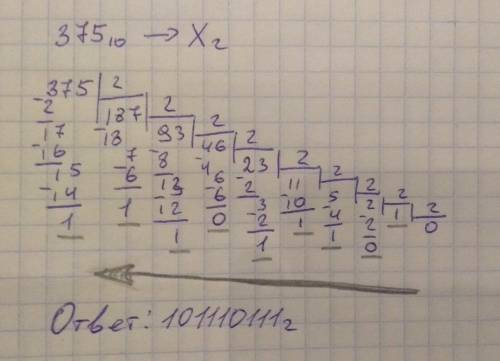 375₁₀ → X₂
375 | 2
-2 187 | 2
17 -18 93 | 2
-16 7 -8 46 | 2
15 -6 13 -4 23 | 2
-14 1 -12 6 -2 11 | 2
1 1 -6 3 -10 5 | 2
0 -2 1 -4 2 | 2
1 1 -2 1 | 2
0 0
Ответ: 101110111₂